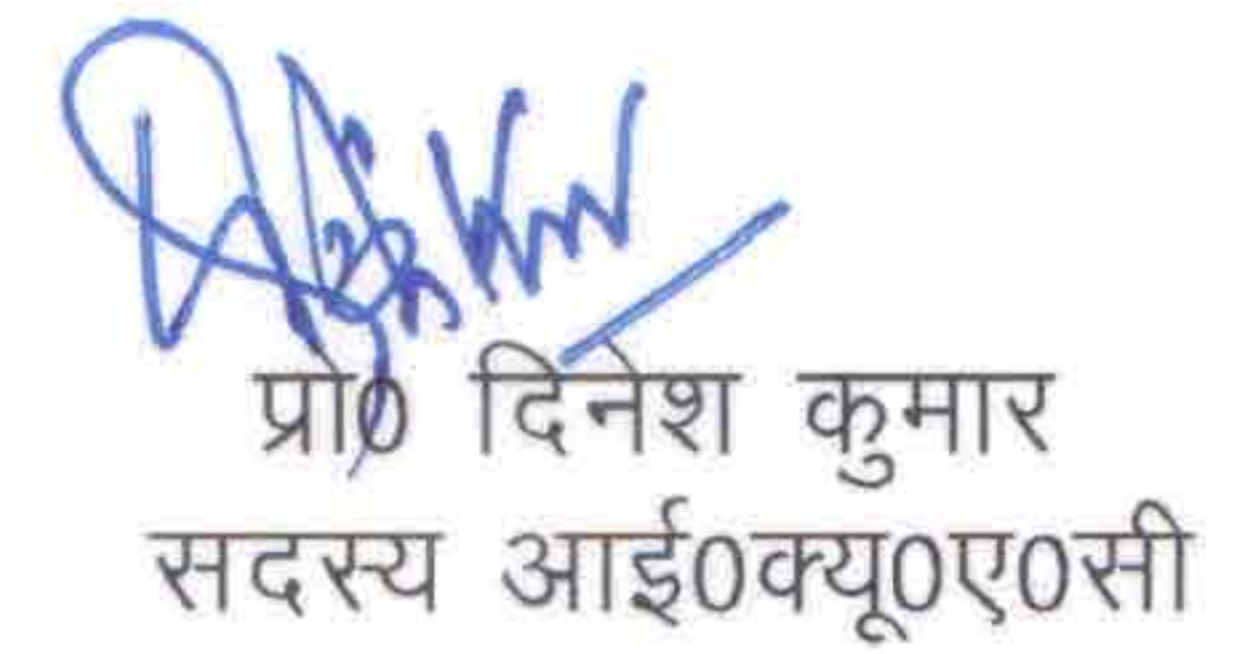 प्रो0 दिनेश कुमार
सदस्य आई0क्यू0ए0सी